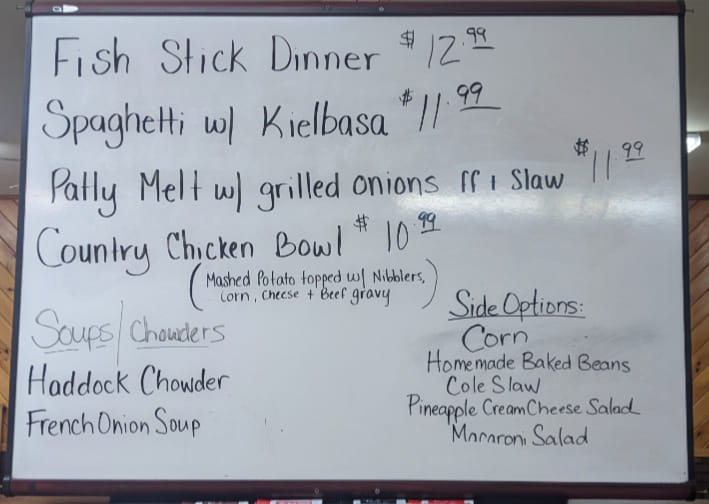 Fish Stick Dinner $12.99
Spaghetti w/ Kielbasa $11.99
Patty Melt w/ grilled onions ff + Slaw $11.99
Country Chicken Bowl $10.99
(Mashed Potato topped w/ Nibblers,
Corn, Cheese + Beef gravy)
Soups/Chowders
Haddock Chowder
French Onion Soup
Side Options:
Corn
Homemade Baked Beans
Cole Slaw
Pineapple Cream Cheese Salad
Macaroni Salad